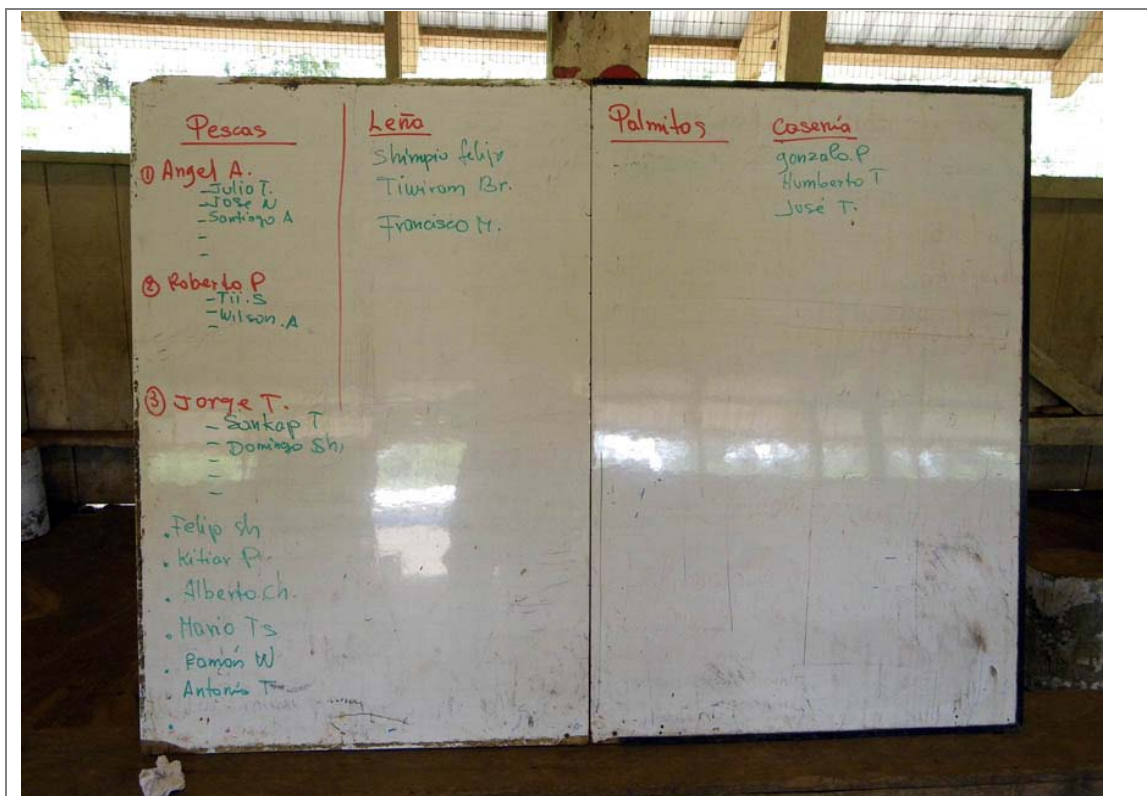 Pescas
① Angel A.
- Julio T.
- Jose N
- Santiago A
-
-
② Roberto P
- Tii.S
- Wilson.A
-
③ Jorge T.
- Sankap T
- Domingo Sh,
-
-
-
. Felip sh
. Kitiar P.
. Alberto.ch.
. Mario Ts
. Ramón W
. Antonio T
.
Leña
Shimpio
Tiwiram Br.
Francisco M.
Palmitos
Casería
gonzalo.P
Humberto T
José T.